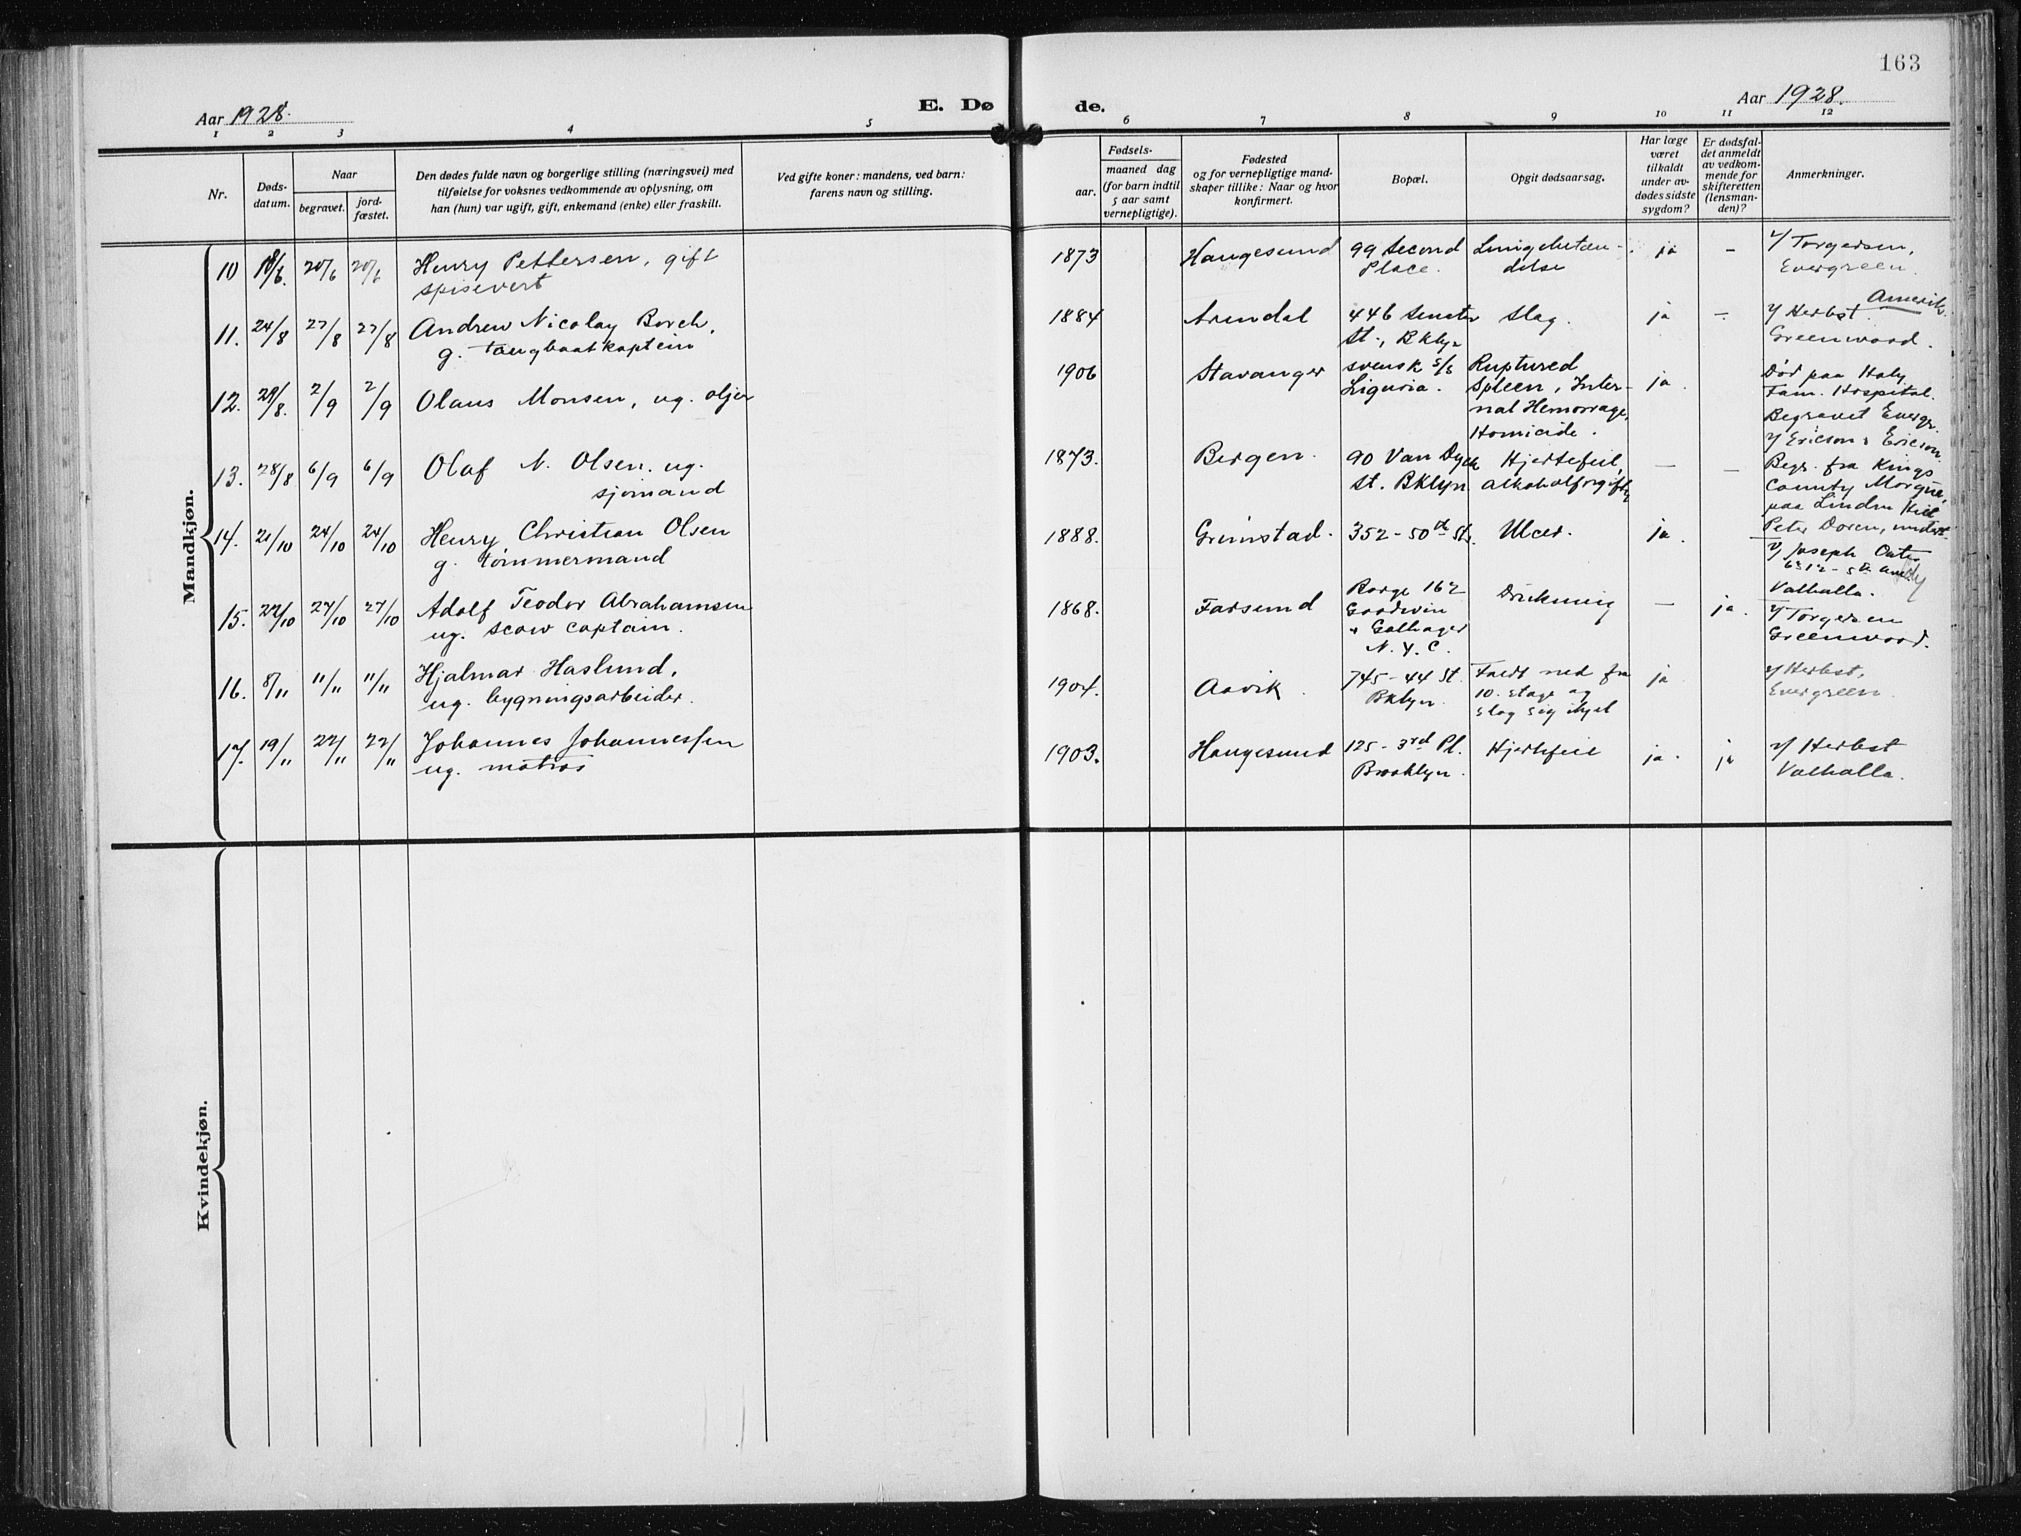 163
Aar 1928.
E. Dø
de.
Aar 1928.
1 2 3 4 5 6 7 8 9 10 11 12
Nr.
Døds-
datum.
Naar
begravet.
jord-
fæstet.
Den dødes fulde navn og borgerlige stilling (næringsvei) med
tilføielse for voksnes vedkommende av oplysning, om
han (hun) var ugift, gift, enkemand (enke) eller fraskilt.
Ved gifte koner: mandens, ved barn:
farens navn og stilling.
Fødsels-
aar.
maaned dag
(for barn indtil
5 aar samt
vernepligtige).
Fødested
og for vernepligtige mand-
skaper tillike: Naar og hvor
konfirmert.
Bopæl.
Opgit dødsaarsag.
Har læge
været
tilkaldt
under av-
dødes sidste
sygdom?
Er dødsfal-
det anmeldt
av vedkom-
mende for
skifteretten
(lensman-
den)?
Anmerkninger.
Mandkjøn.
10 18/6. 20/6 20/6
Henry Pettersen, gift
spisevert
1873
Haugesund
99 Second
Place.
Lungebetæn-
delse
ja
–
v/ Torgersen,
Evergreen.
11. 24/8 27/8 27/8
Andrew Nicolay Borch,
g. taugbaatkaptein
1884
Arendal
446
St., Bklyn
Slag.
ja
–
v/ Herbst. Amerik.
Greenwood.
12. 29/8. 2/9 2/9
Olaus Monsen, ug. oljer
1906
Stavanger
svensk s/s
Liguria.
Ruptured
Spleen, Inter-
nal Hemorrage,
Homicide.
ja.
Død paa Holy
Fam. Hospital.
Begravet Evergr.
v/ Ericson & Ericson.
13. 28/8 6/9 6/9
Olaf N. Olsen. ug.
sjømand
1873.
Bergen.
90 Van Dyck
St. Bklyn
Hjertefeil,
alkoholforgiftn
–
–
Begr. fra Kings
County Morgue,
paa Linden Hill
Peter Doren, undert.
14. 21/10 24/10 24/10
Henry Christian Olsen
g. tømmermand
1888.
Grimstad.
352 - 50th St.
Ulcer.
ja.
v/ Joseph
6312 - 5th Ave.
Valhalla.
15. 22/10 27/10 27/10
Adolf Teodor Abrahamsen
ug. scow captain.
1868.
Farsund
Barge 162
Goodwin
& Galhager
N.Y.C.
Drukning
–
ja.
v/ Torgersen
Greenwood.
16. 8/11 11/11 11/11
Hjalmar Haslund,
ug. bygningsarbeider.
1904.
Aavik.
745 - 44 St.
Bklyn.
Faldt ned fra
10. etage og
slog sig ihjel
ja
v/ Herbst,
Evergreen.
17. 19/11 22/11 22/11
Johannes Johannessen
ug. matros
1903.
Haugesund
125 - 3rd Pl.
Brooklyn.
Hjertefeil
ja.
ja
v/ Herbst
Valhalla.
Kvindekjøn.